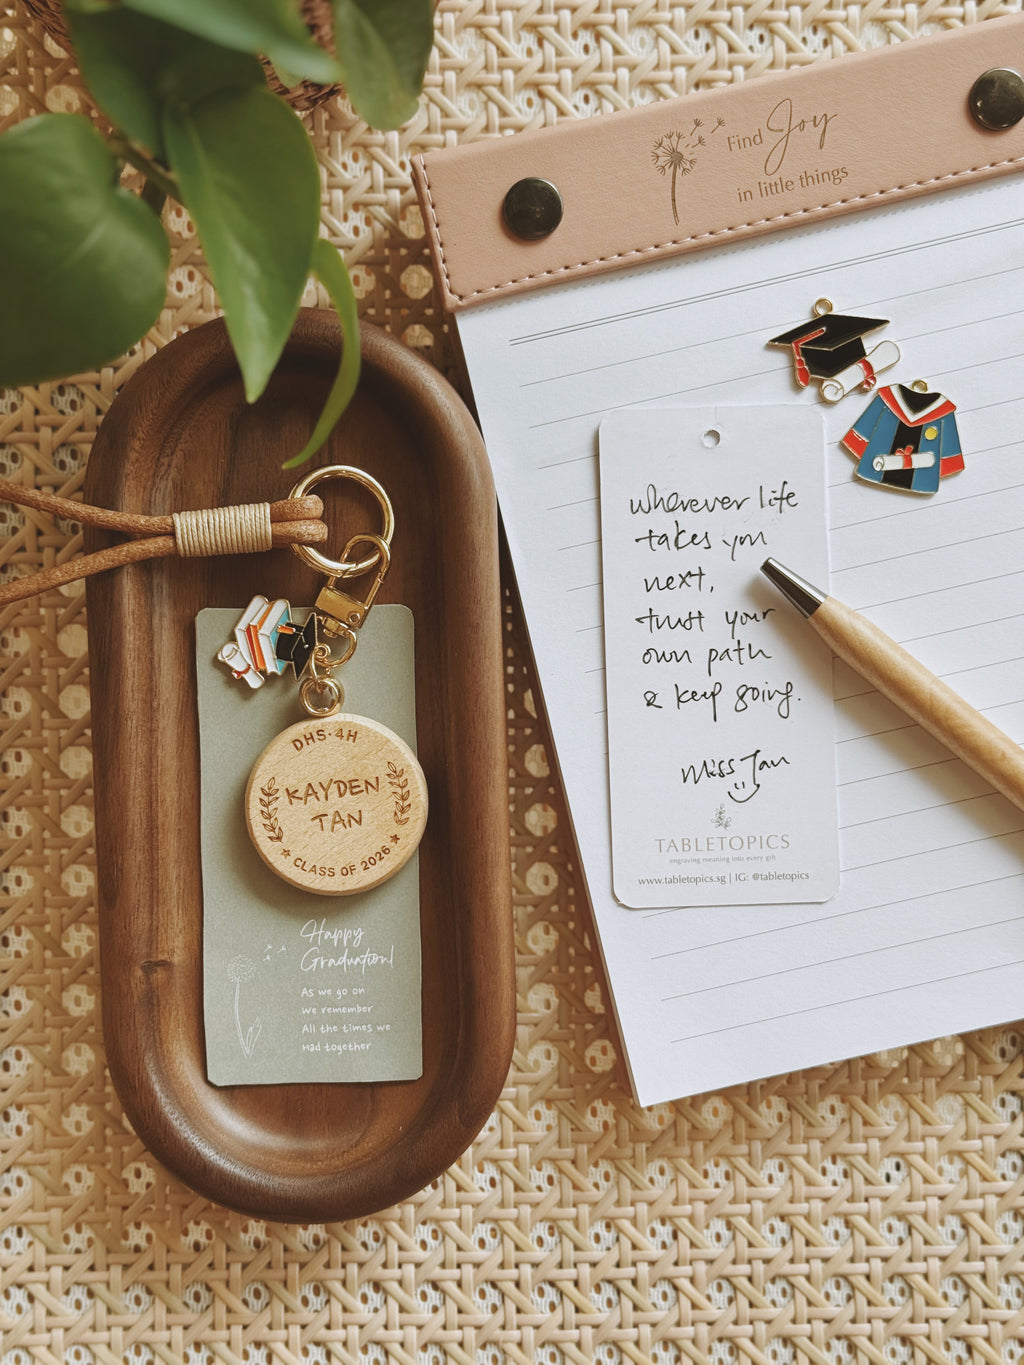 Find Joy
in little things
wherever life
takes you
next,
trust your
own path
& keep going.
Miss Tan
TABLETOPICS
engraving meaning into every gift
www.tabletopics.sg | IG: @tabletopics
DHS·4H
KAYDEN
TAN
★ CLASS OF 2026 ★
Happy
Graduation!
As we go on
We remember
All the times we
Had together